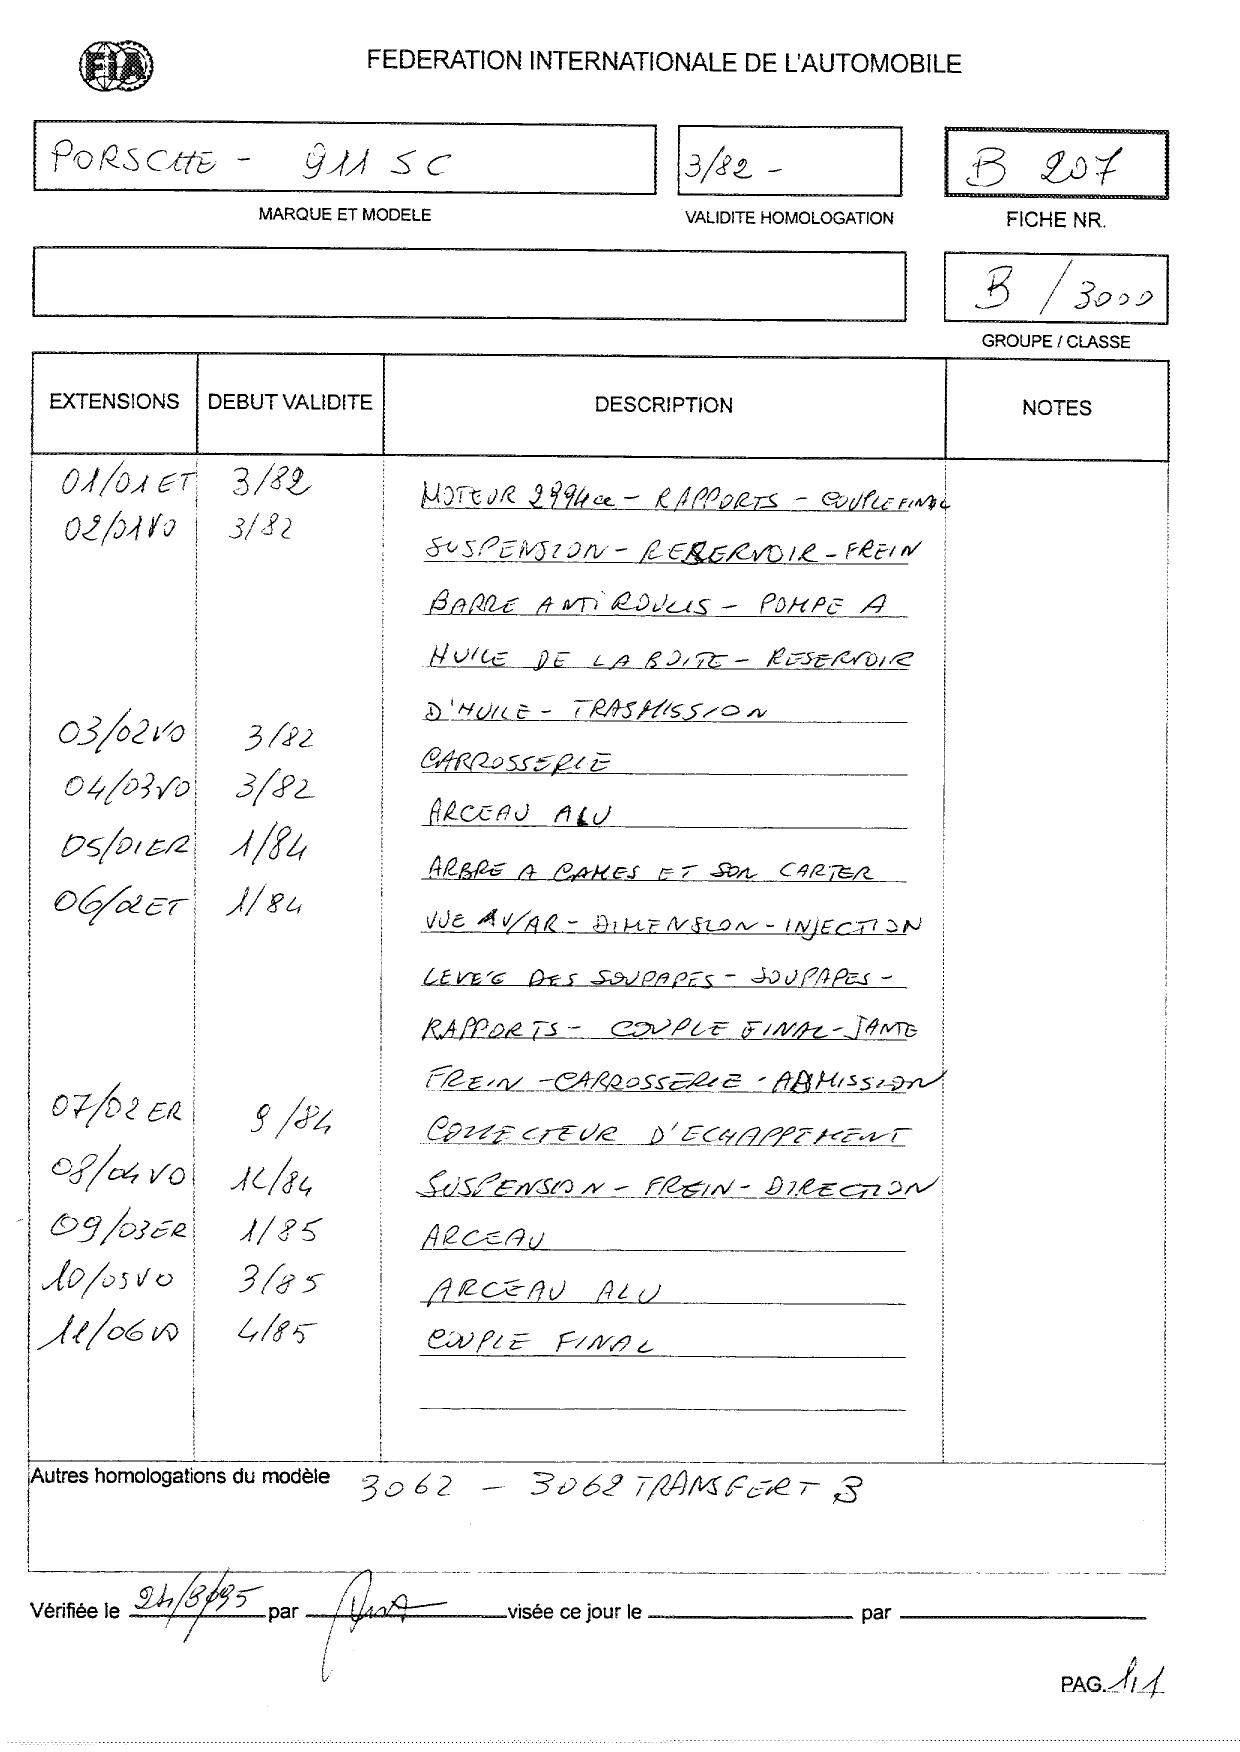 FIA
FEDERATION INTERNATIONALE DE L'AUTOMOBILE
PORSCHE - 911 SC
3/82 -
B 207
MARQUE ET MODELE
VALIDITE HOMOLOGATION
FICHE NR.
B / 3000
GROUPE / CLASSE
EXTENSIONS DEBUT VALIDITE DESCRIPTION NOTES
01/01ET 3/82 MOTEUR 2994cc - RAPPORTS - COUPLE FINAL
02/01VO 3/82 SUSPENSION - RERERVOIR - FREIN
BARRE ANTIROULIS - POMPE A
HUILE DE LA BOITE - RESERVOIR
D'HUILE - TRASMISSION
03/02VO 3/82 CARROSSERIE
04/03VO 3/82 ARCEAU ALU
05/01ER 1/84 ARBRE A CAMES ET SON CARTER
06/02ET 1/84 VUE AV/AR - DIMENSION - INJECTION
LEVEE DES SOUPAPES - SOUPAPES -
RAPPORTS - COUPLE FINAL - JANTE
FREIN - CARROSSERIE - ADMISSION
07/02ER 9/84 COLLECTEUR D'ECHAPPEMENT
08/04VO /84 SUSPENSION - FREIN - DIRECTION
09/03ER 1/85 ARCEAU
10/05VO 3/85 ARCEAU ALU
11/06VO 4/85 COUPLE FINAL
Autres homologations du modèle 3062 - 3062 TRANSFERT B
Vérifiée le par visée ce jour le par
PAG. 1/1